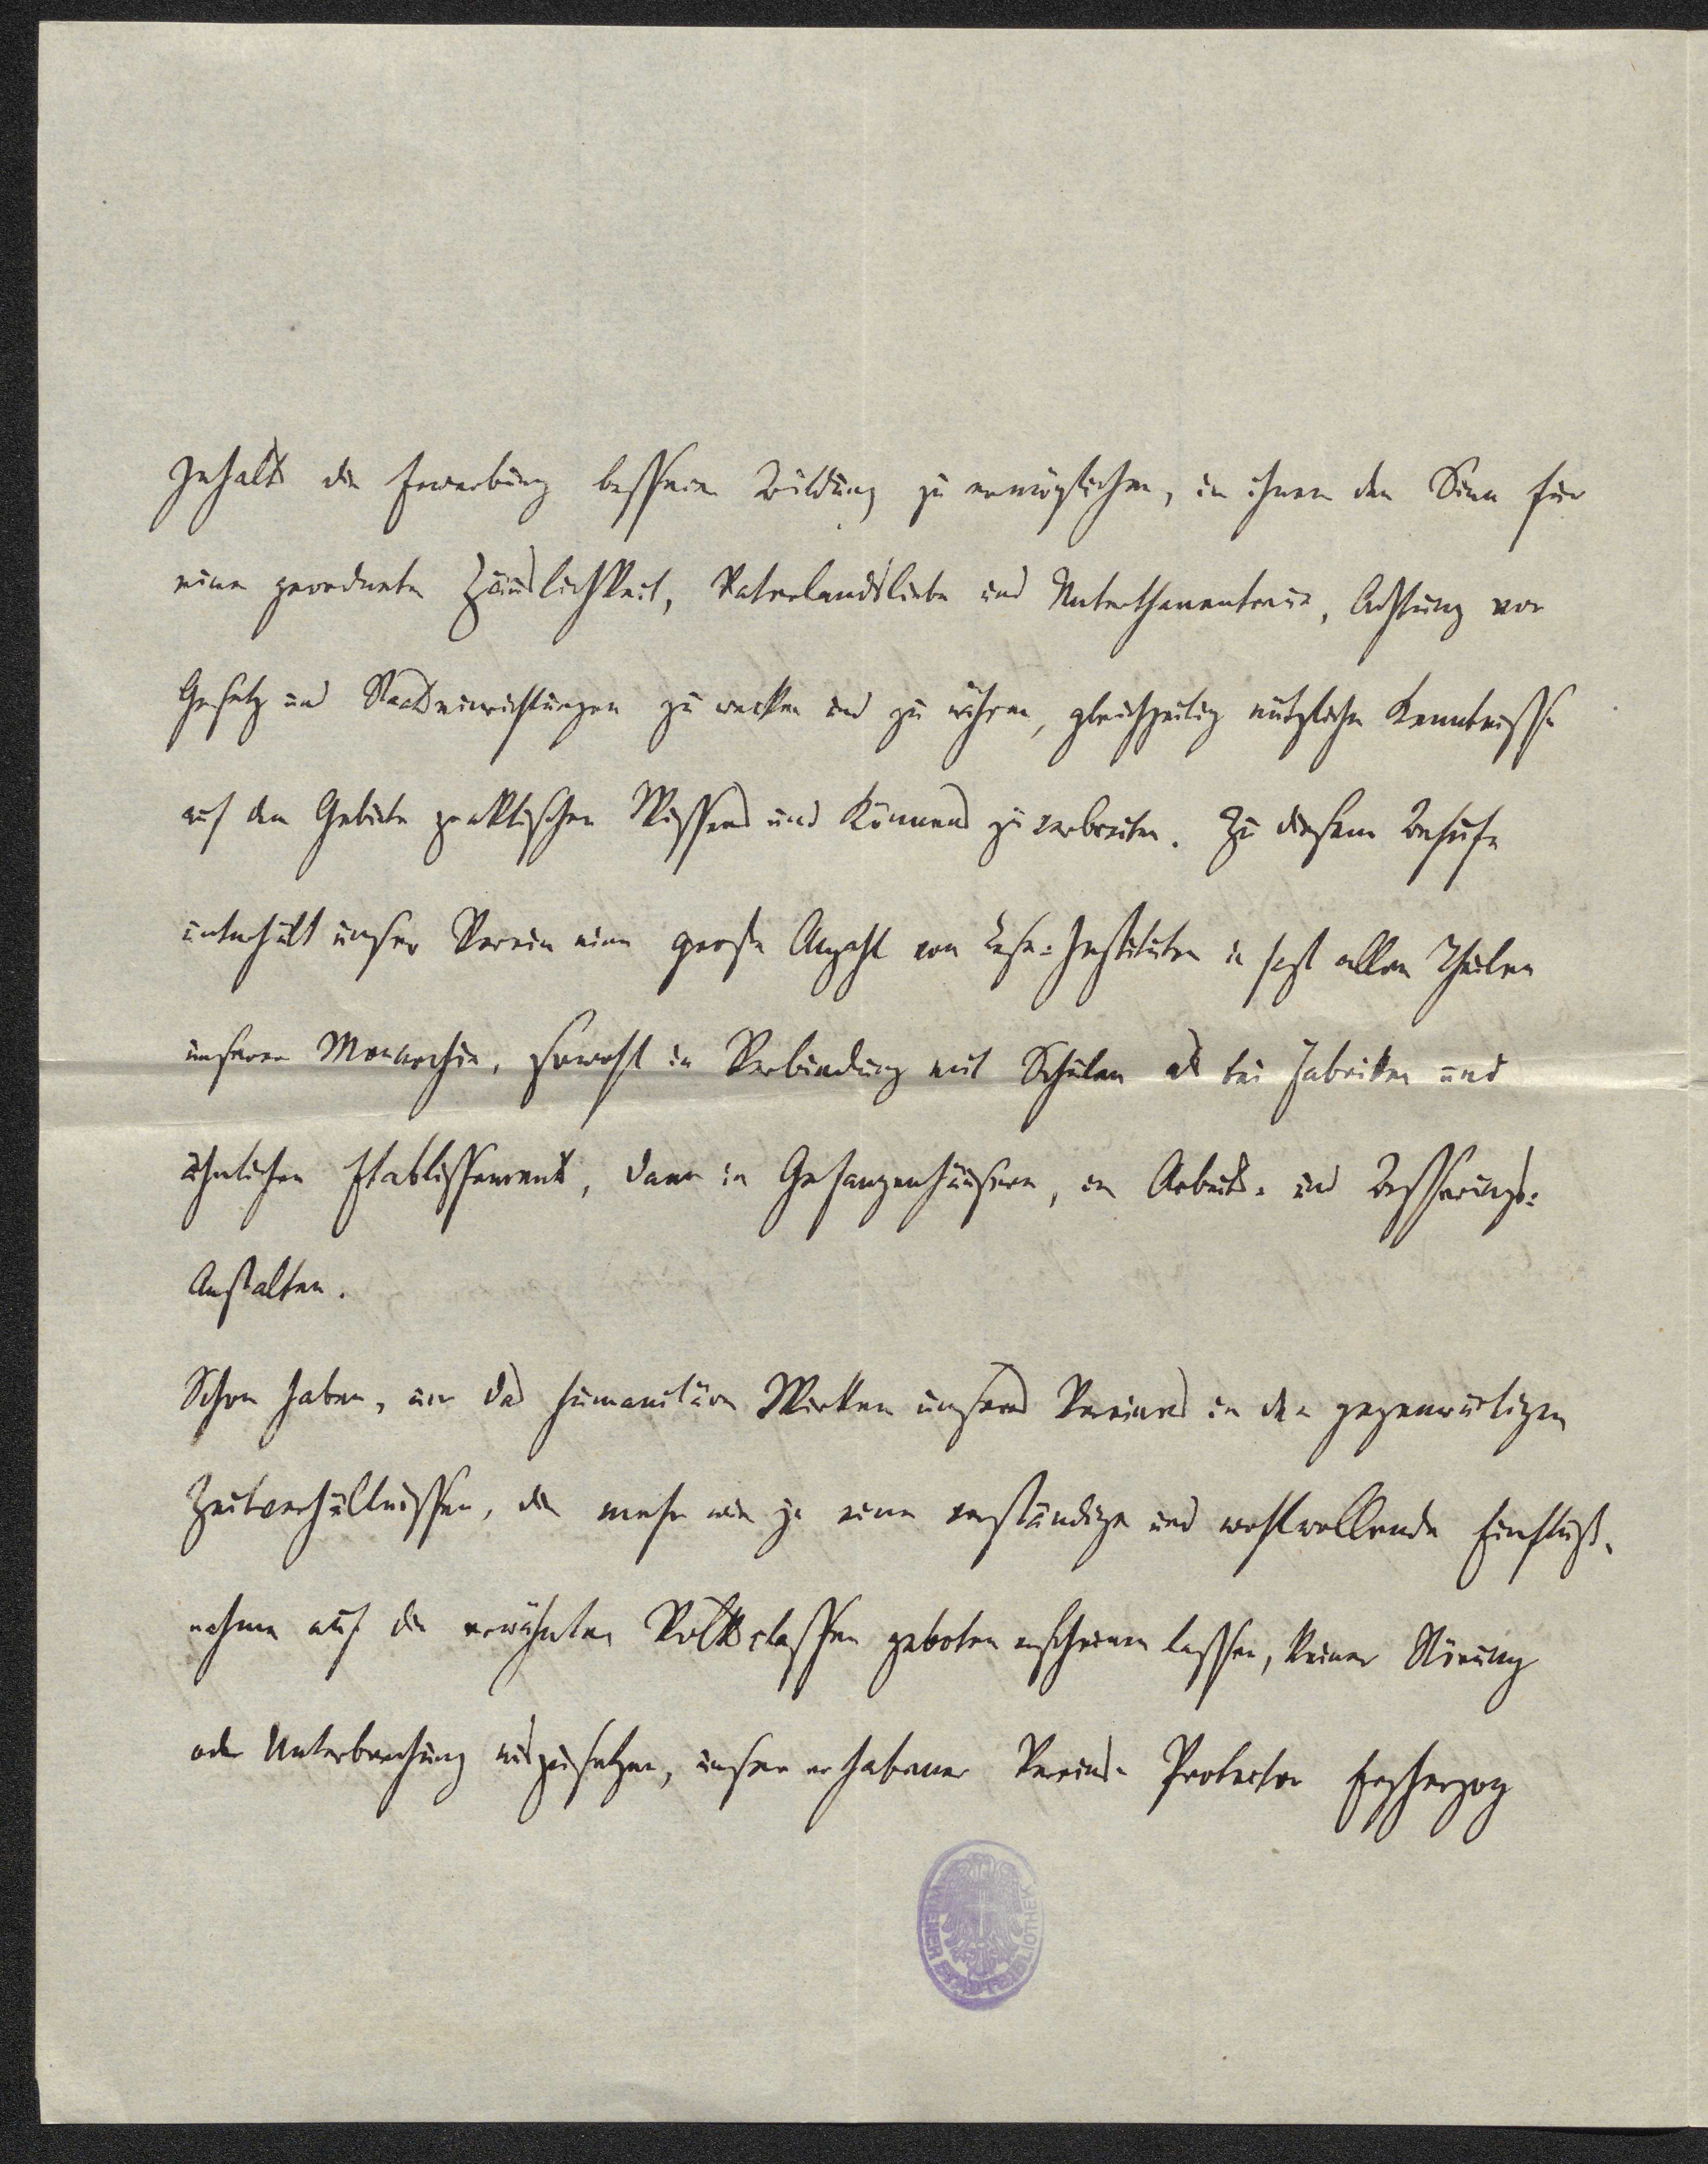 Inhalts die Erwerbung besserer Bildung zu ermöglichen, in ihnen den Sinn für
eine geordnete Häuslichkeit, Vaterlandsliebe und Unterthanentreue, Achtung vor
Gesetz und Staatseinrichtungen zu wecken und zu nähren, gleichzeitig nützliche Kenntnisse
auf dem Gebiete praktischen Wissens und Könnens zu verbreiten. Zu diesem Behufe
unterhält unser Verein eine große Anzahl von Lese-Instituten in fast allen Theilen
unserer Monarchie, sowohl in Verbindung mit Schulen als bei Fabriken und
ähnlichen Etablissements, dann in Gefangenhäusern, in Arbeits- und Besserungs-
Anstalten.
Schon haben, um das humanitäre Wirken unseres Vereines in den gegenwärtigen
Zeitverhältnissen, die mehr wie je eine verständige und wohlwollende Einfluß-
nahme auf die erwähnten Volksclassen geboten erscheinen lassen, keiner Störung
oder Unterbrechung auszusetzen, unser erhabener Vereins-Protector Erzherzog
WIENER STADTBIBLIOTHEK